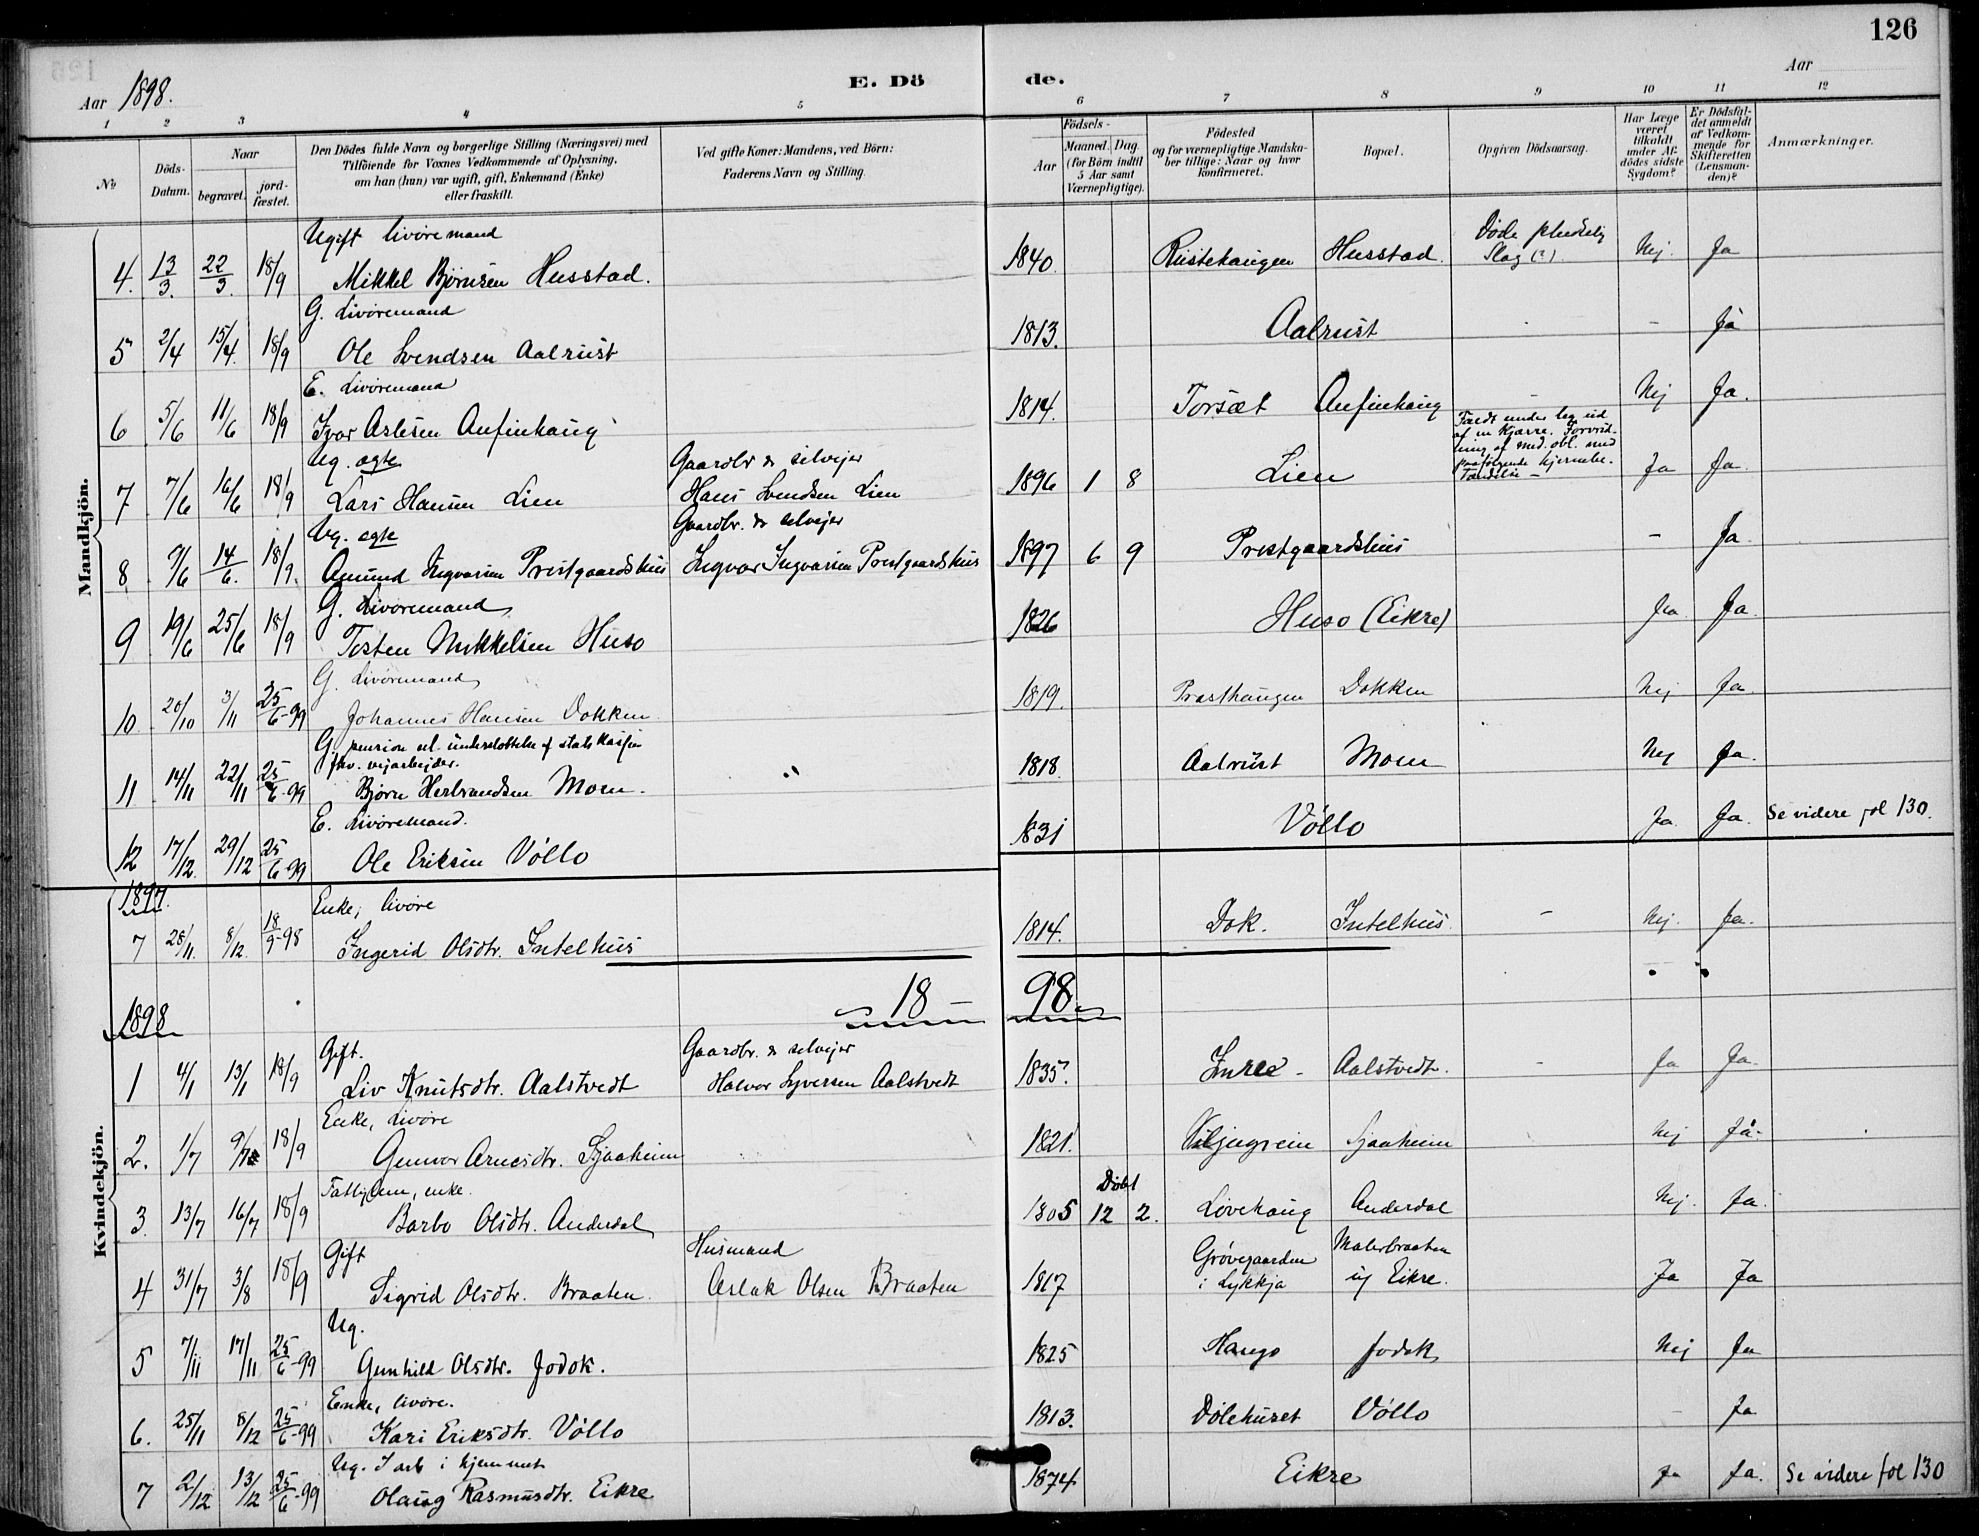 126
Aar 1898.
E. Dö de.
Aar
1 2 3 4 5 6 7 8 9 10 11 12
№
Döds-Datum.
Naar
begravet.
jord-fæstet.
Den Dödes fulde Navn og borgerlige Stilling (Næringsvei) med
Tilföiende for Voxnes Vedkommende af Oplysning,
om han (hun) var ugift, gift, Enkemand (Enke)
eller fraskilt.
Ved gifte Koner: Mandens, ved Börn:
Faderens Navn og Stilling.
Födsels-
Aar
Maaned. Dag.
(for Börn indtil
5 Aar samt
Værnepligtige).
Födested
og for værnepligtige Mandska-
ber tillige: Naar og hvor
konfirmeret.
Bopæl.
Opgiven Dödsaarsag.
Har Læge
været
tilkaldt
under Af-
dödes sidste
Sygdom?
Er Dödsfal-
det anmeldt
af Vedkom-
mende for
Skifteretten
(Lensman-
den)?
Anmærkninger.
Mandkjön.
Ugift livøremand
4. 13/3. 22/3. 18/9 Mikkel Bjørnsen Husstad. 1840. Rustehaugen Husstad. Døde pludselig Slag (?) Nej. Ja
G. Livøremand
5 2/4 15/4. 18/9 Ole Svendsen Aalrust 1813. Aalrust - Ja
E. Livøremand
6 5/6 11/6 18/9 Ivar Aslesen Aufinhaug 1814. Torsæt Aufinhaug - Nej Ja.
Ug. ægte Gaardbr & selvejer
7 7/6 16/6 18/9 Lars Hansen Lien Hans Svendsen Lien 1896 1 8 Lien
Faldt under leg ud
af en Kjærre. Forvrid-
ning af med. obl. med
paafølgende hjernebe-
tændelse -
Ja Ja
Ug. ægte Gaardbr. & selvejer
8 9/6 14/6. 18/9. Amund Ingvarsen Prestgaardshus Ingvar Ingvarsen Prestgaardshus 1897 6 9 Prestgaardshus - Ja
G. Livøremand
9 19/6 25/6 18/9 Tosten Mikkelsen Huso 1826 Huso (Eikre) Ja Ja
G. Livøremand
10 20/10 3/11 25/6-99 Johannes Hansen Dokken 1819. Prasthaugen Dokken Nej Ja
G. pension el. understøttelse af statskassen
fhv. vejarbejder.
11 14/11 22/11 25/6-99 Bjørn Herbrandsen Moen. " 1818. Aalrust Moen Nej Ja.
E. Livøremand.
12 17/12. 29/12 25/6-99 Ole Eriksen Vøllo 1831 Vøllo Ja. Ja. Se videre fol 130.
1897.
Enke, livøre
7 28/11. 8/12. 18/9-98 Ingerid Olsdtr. Intelhus 1814. Dok. Intelhus. - Nej. Ja.
18 - 98.
1898
Kvindekjön.
Gift. Gaardbr. & selvejer
1 4/1 13/1 18/9 Liv Knutsdtr. Aalstvedt Halvor Syversen Aalstvedt 1835. Aalstvedt. - Ja Ja
Enke, Livøre
2. 1/7 9/7 18/9 Gunvor Arnesdtr. Sjaaheim 1821. Viljugrein Sjaaheim Nej Ja.
Fattiglem, enke.
3. 13/7 16/7 18/9 Barbo Olsdtr. Anderdal 1805 Døbt 12 2. Løvehaug Anderdal Nej. Ja.
Gift Husmand
4 31/7 3/8 18/9 Sigrid Olsdtr. Braaten. Aslak Olsen Braaten 1817 Grøvegaarden i Lykkja Malerbraaten u/ Eikre. Ja Ja
Ug.
5 7/11 17/11 25/6-99 Gunhild Olsdtr. Jodok. 1825 Haugo Jodok Nej Ja
Enke, livøre.
6. 25/11 8/12 25/6-99 Kari Eriksdtr. Vøllo 1813. Dølehuset Vøllo - Ja
Ug. I arb i hjemmet
7 2/12 13/12 25/6-99 Olaug Rasmusdtr. Eikre 1874 Eikre Ja Ja. Se videre fol 130